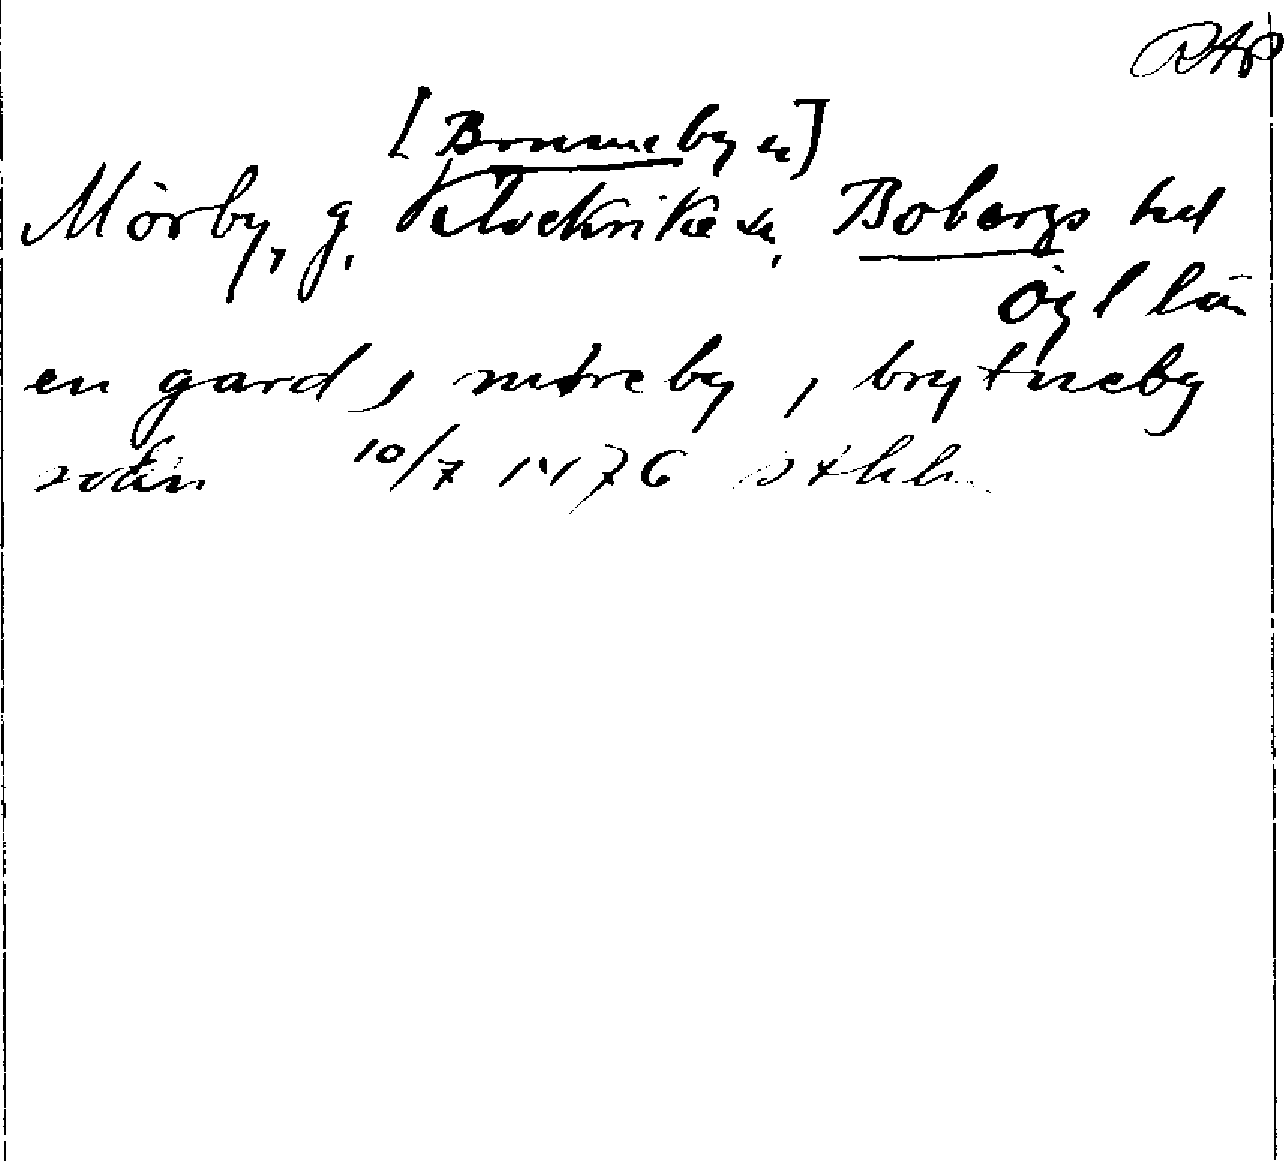 RAP
[Brunneby sn]
Mörby, g. Klockrike sn, Bobergs hd
Ögl län
en gard j møreby, j brytneby
sokn 10/7 1476 sthlm